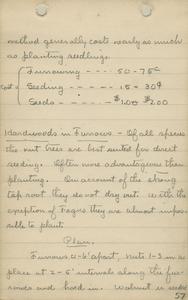 method generally costs nearly as much
as planting seedlings.
Furrowing - - - - 50 - 75¢
Cost = Seeding - - - - 15 - 30¢
Seeds - - - - $1.00 - $2.00
Hardwoods in Furrows - Of all species
the nut trees are best suited for direct
seeding. Often more advantageous than
planting. On account of the strong
tap root they do not dry out. With the
exception of Fagus they are almost impos-
sible to plant.
Plan.
Furrows 4-6' apart, nuts 1-3 in a
place at 2-5' intervals along the fur-
rows and hoed in. Walnut is seeded
57